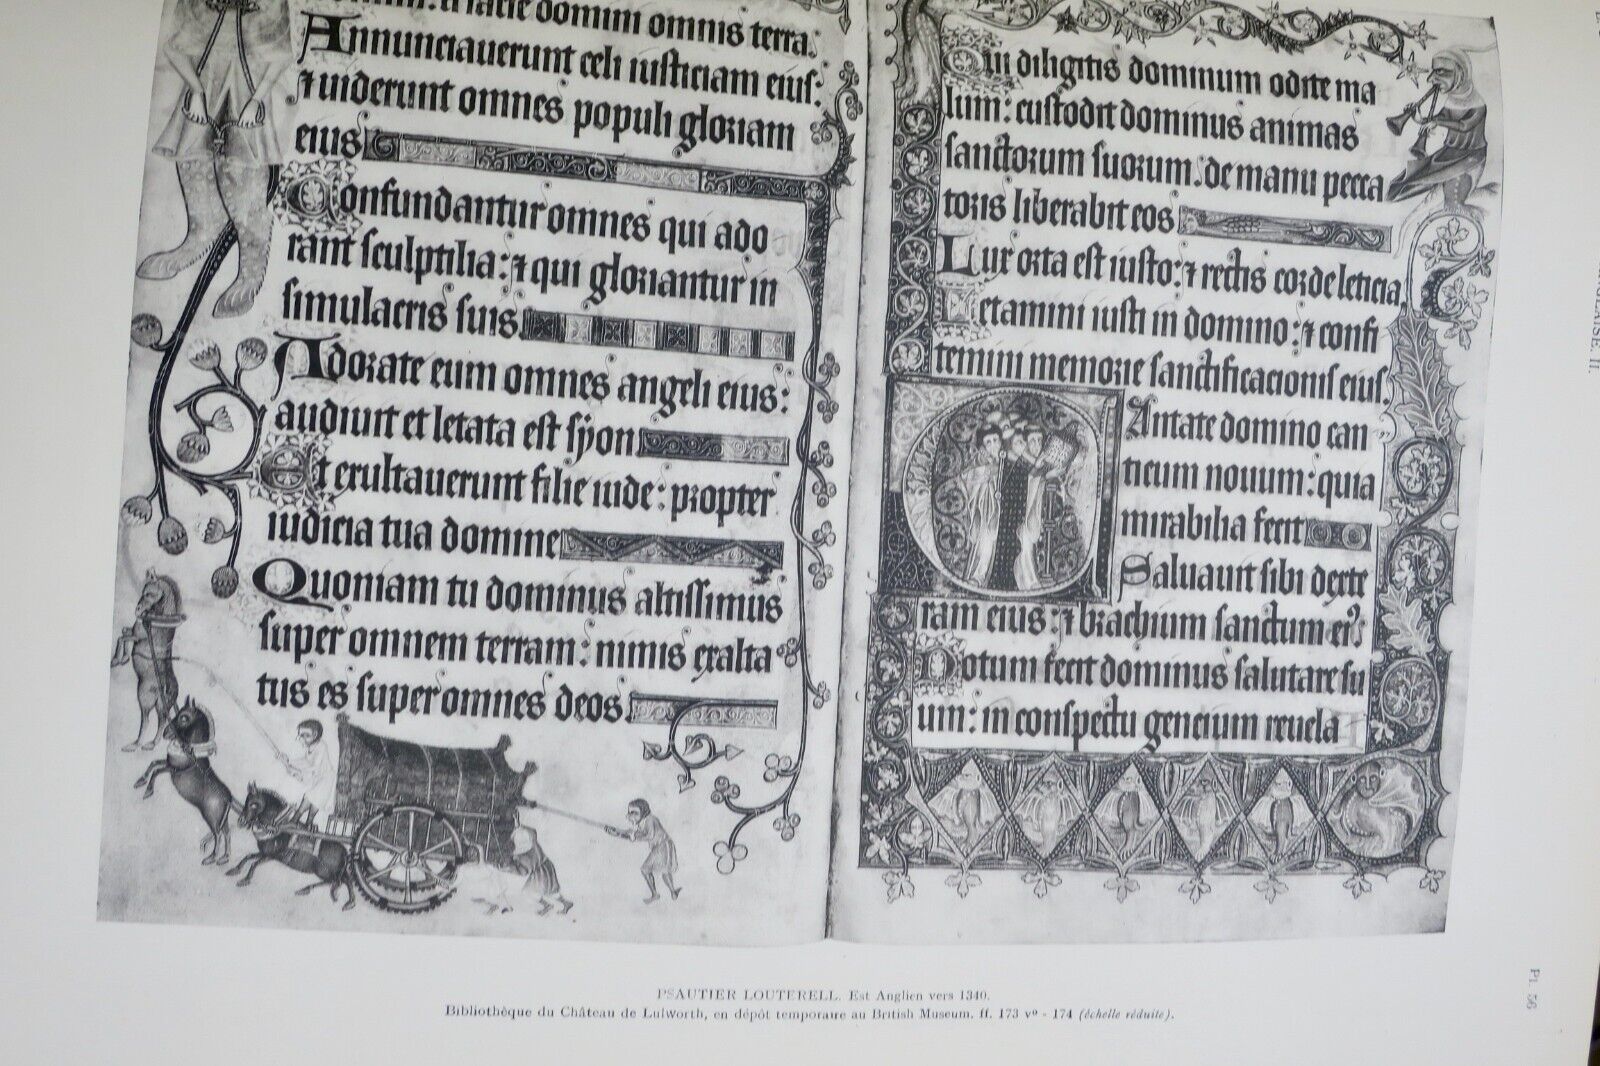 a facie domini omnis terra.
Annunciauerunt celi iusticiam eius:
⁊ uiderunt omnes populi gloriam
eius
Confundantur omnes qui ado
rant sculptilia: ⁊ qui gloriantur in
simulacris suis.
Adorate eum omnes angeli eius:
audiuit et letata est syon
Et exultauerunt filie iude: propter
iudicia tua domine
Quoniam tu dominus altissimus
super omnem terram: nimis exalta
tus es super omnes deos.
Qui diligitis dominum odite ma
lum: custodit dominus animas
sanctorum suorum: de manu pecca
toris liberabit eos
Lux orta est iusto: ⁊ rectis corde leticia
Letamini iusti in domino: ⁊ confi
temini memorie sanctificacionis eius.
Cantate domino can
ticum nouum: quia
mirabilia fecit
Saluauit sibi dexte
ram eius: ⁊ brachium sanctum ei'
Notum fecit dominus salutare su
um: in conspectu gencium reuela
PSAUTIER LOUTERELL. Est Anglien vers 1340.
Bibliothèque du Château de Lulworth, en dépôt temporaire au British Museum. ff. 173 vº - 174 (échelle réduite).
Pl. 56